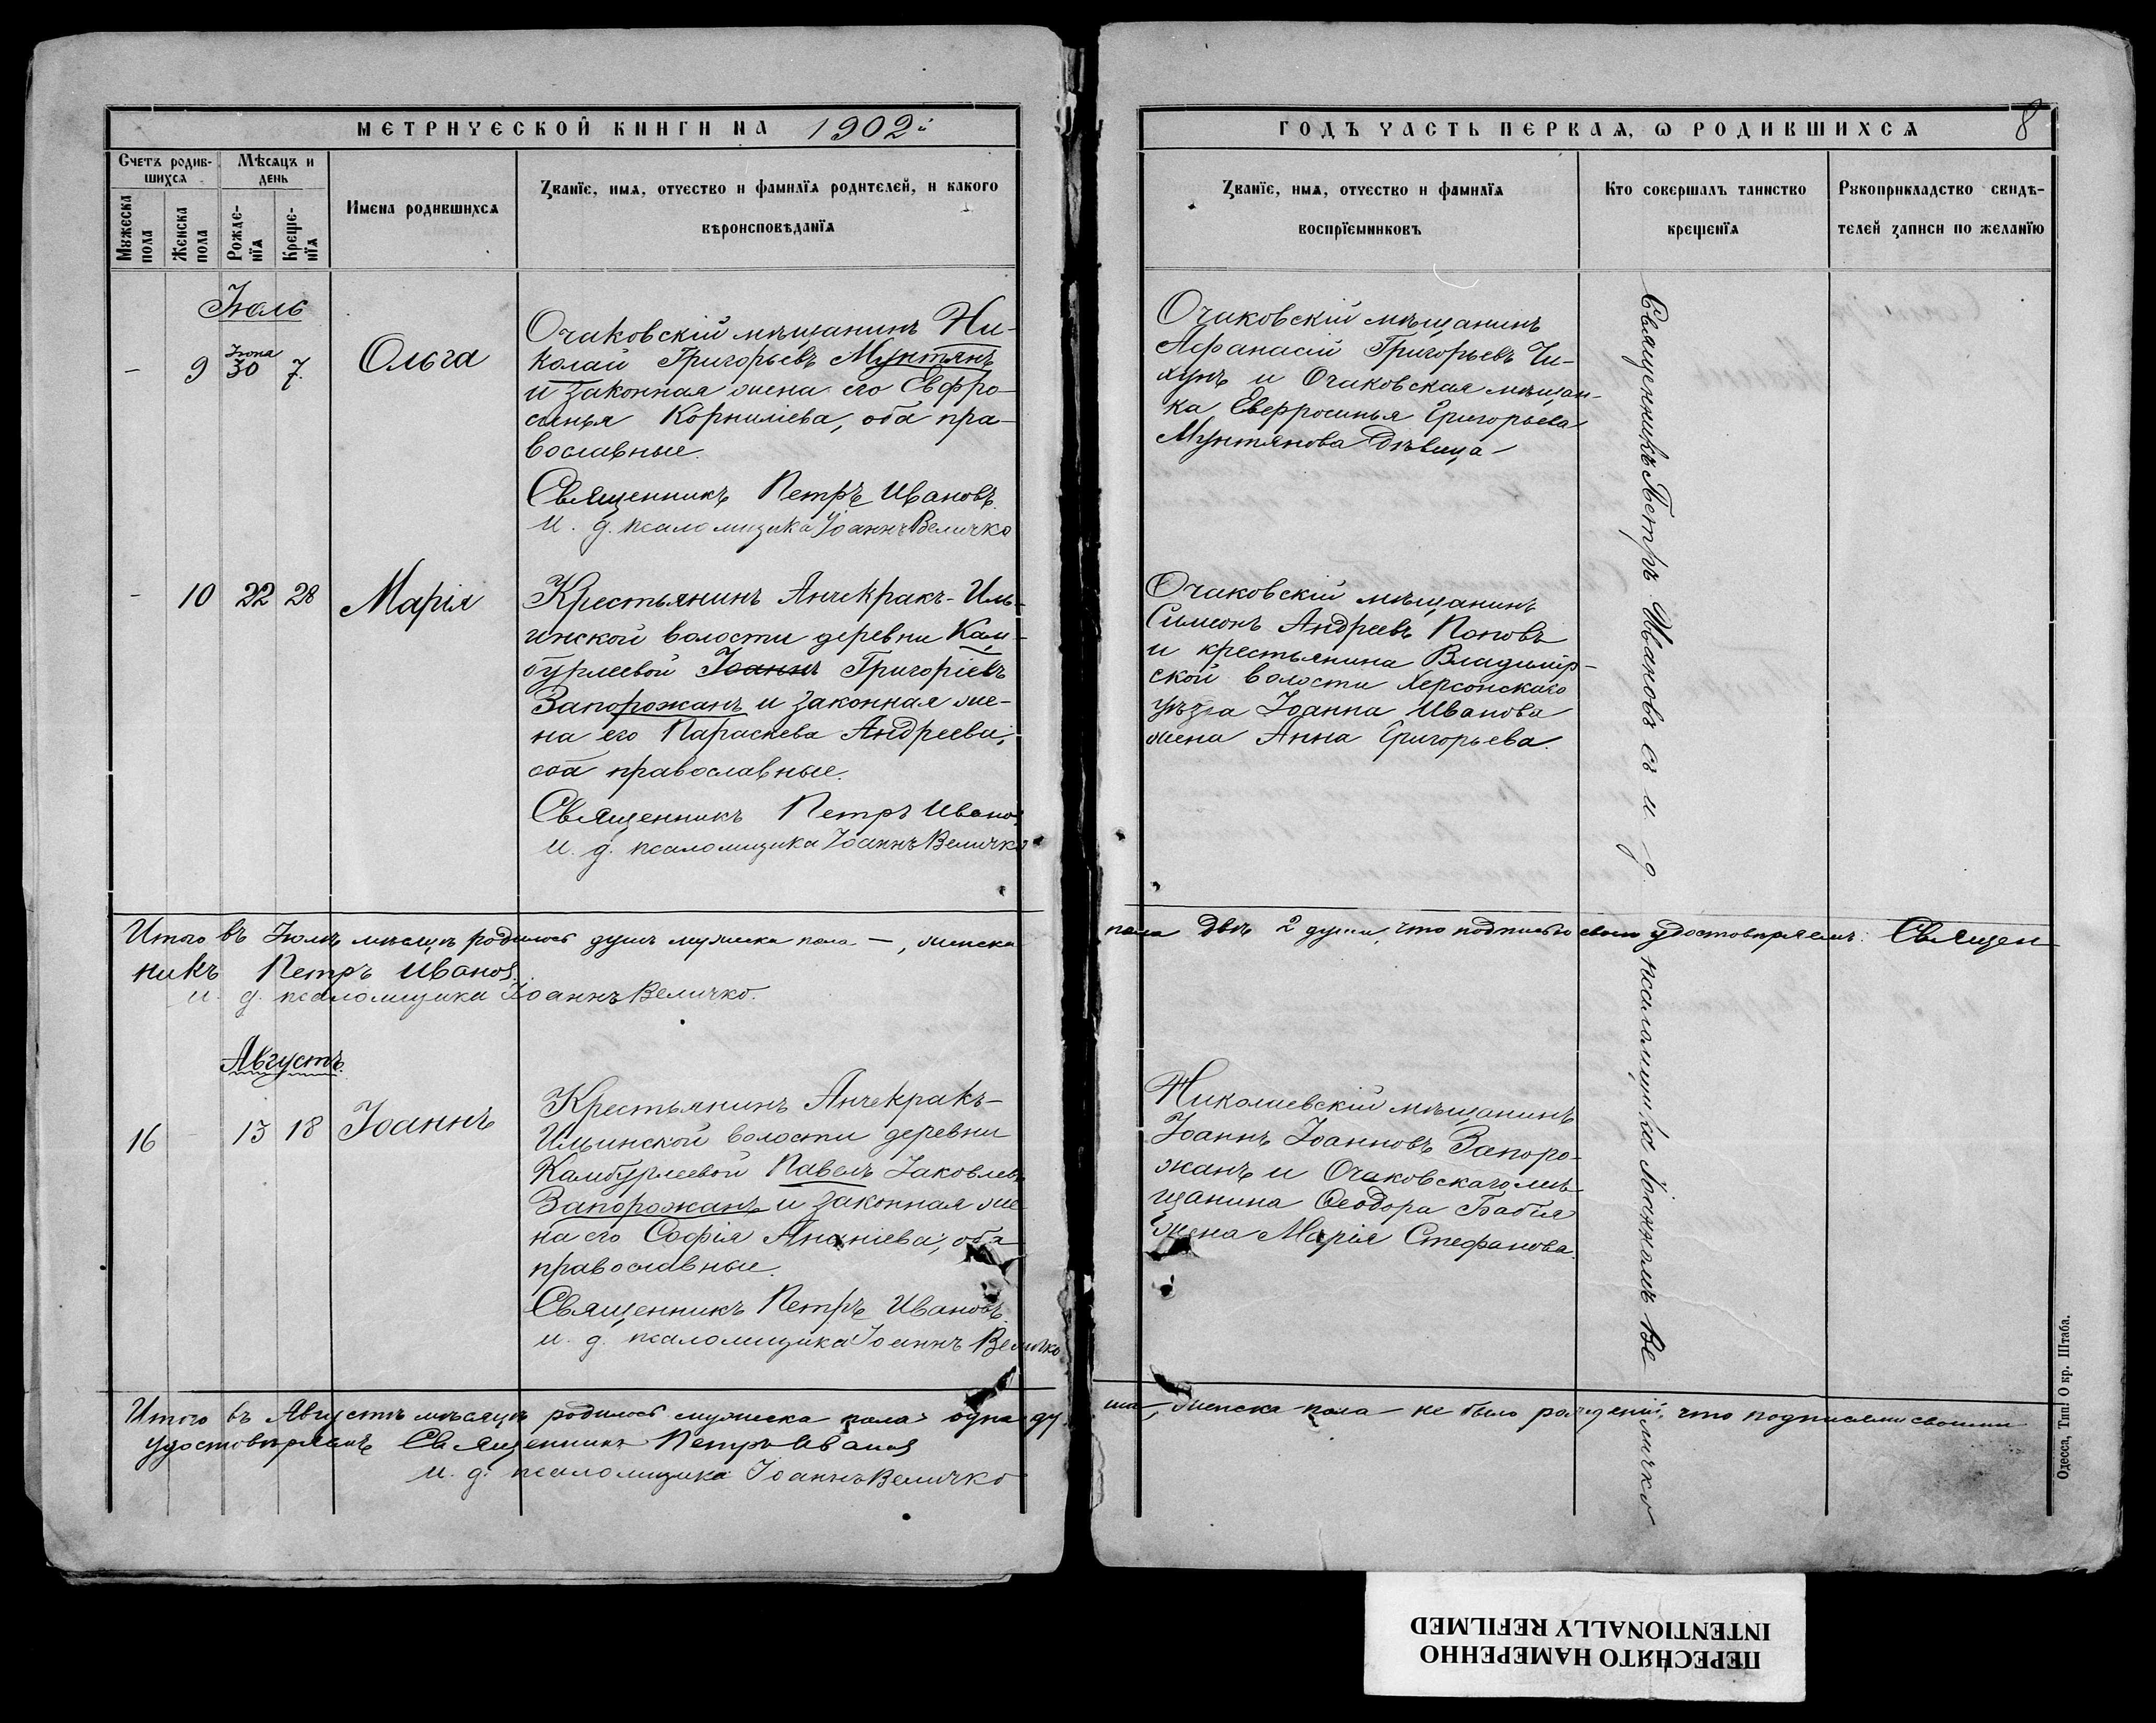 МЕТРИЧЕСКОЙ КНИГИ НА 1902й
Счетъ родив-
шихся
Мѣсяцъ и
день
Мужеска
пола
Женска
пола
Рожде-
нія
Креще-
нія
Имена родившихся
Званіе, имя, отчество и фамилія родителей, и какого
вѣроисповѣданія
Іюль
- 9 Іюня 30 7. Ольга
Очаковскій мѣщанинъ Ни-
колай Григорьевъ Мунтянъ
и законная жена его Евфро-
синья Корниліева, оба пра-
вославные.
Священникъ Петръ Ивановъ.
И. д. псаломщика Іоаннъ Величко
- 10 22 28 Марія
Крестьянинъ Анчекракъ-Иль-
инской волости деревни Кам-
бурлеевой Іоаннъ Григоріевъ
Запорожанъ и законная же-
на его Параскева Андреева,
оба православные.
Священникъ Петръ Ивановъ
И. д. псаломщика Іоаннъ Величко
Итого въ Іюлѣ мѣсяцѣ родилось душъ мужеска пола —, женска
никъ Петръ Ивановъ.
и. д. псаломщика Іоаннъ Величко.
Августъ.
16 - 13 18 Іоаннъ
Крестьянинъ Анчекракъ-
Ильинской волости деревни
Камбурлеевой Павелъ Іаковлевъ
Запорожанъ и законная же-
на его Софія Ананіева, оба
православные.
Священникъ Петръ Ивановъ.
и. д. псаломщика Іоаннъ Величко
Итого въ Августѣ мѣсяцѣ родилось мужеска пола одна ду-
удостовѣряемъ Священникъ Петръ Ивановъ
И. д. псаломщика Іоаннъ Величко
ГОДЪ ЧАСТЬ ПЕРВАЯ, Ѡ РОДИВШИХСЯ 8
Званіе, имя, отчество и фамилія
воспріемниковъ
Кто совершалъ таинство
крещенія
Рукоприкладство свидѣ-
телей записи по желанію
Очаковскій мѣщанинъ
Афанасій Григорьевъ Чи-
хунъ и Очаковская мѣщан-
ка Евфросинья Григорьева
Мунтянова дѣвица -
Очаковскій мѣщанинъ
Симеонъ Андреевъ Поповъ
и крестьянина Владимір-
ской волости Херсонскаго
уѣзда Іоанна Иванова
жена Анна Григорьева.
пола двѣ 2 души, что подписью своею удостовѣряемъ: Священ-
Николаевскій мѣщанинъ
Іоаннъ Іоанновъ Запоро-
жанъ и Очаковскаго мѣ-
щанина Ѳеодора Бабія
жена Марія Стефанова.
ша, женска пола - не было рожденій, что подписями своими
Священникъ Петръ Ивановъ съ и. д. псаломщика Іоанномъ Величко
Одесса, Тип. О кр. Штаба.
ПЕРЕСНЯТО НАМЕРЕННО
INTENTIONALLY REFILMED